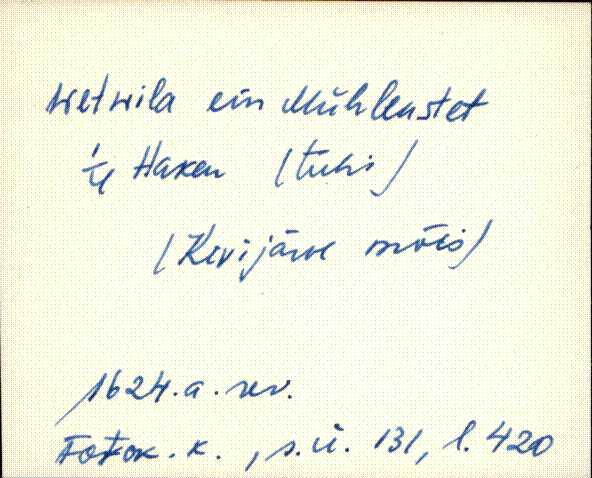 Wetwila ein Mühlenstet
1/4 Haken (tühi)
(Kivijärve mõis)
1624. a. rev.
Fotok. k., s.ü. 131, l. 420